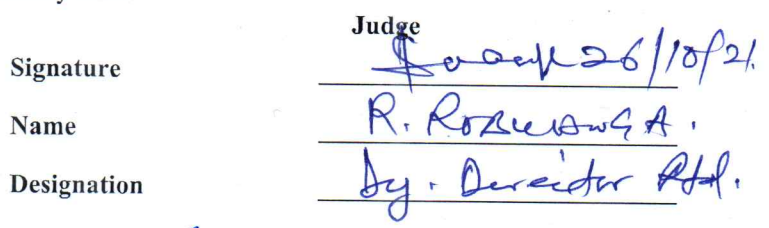 Judge
Signature 26/10/21.
Name R. ROBULIANGA.
Designation Dy. Director Rtd.